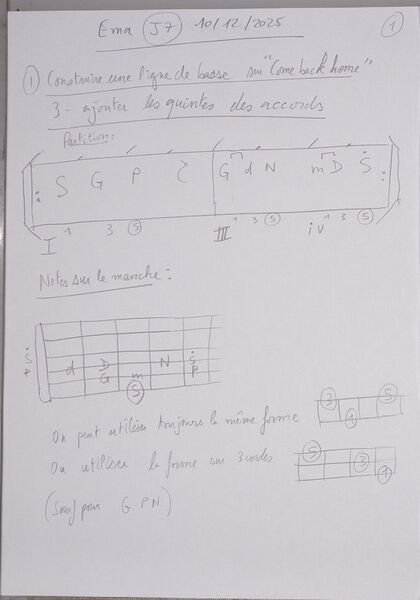 Ema J7 10/12/2025 1
1 Construire une ligne de basse sur "Come back home"
3 - ajouter les quintes des accords
Partition :
S G P G d N m D S
I 1 3 5 III 1 3 5 iv 1 3 5
Notes sur le manche :
S d D N S
P G m P
S
On peut utiliser toujours la même forme 3 1 5
Ou utiliser la forme sur 3 cordes 5 3 1
(Sauf pour G P N)